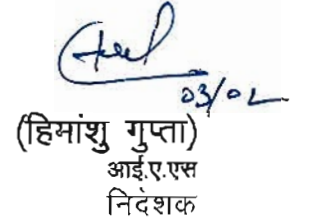 03/02
(हिमांशु गुप्ता)
आई.ए.एस
निदेशक